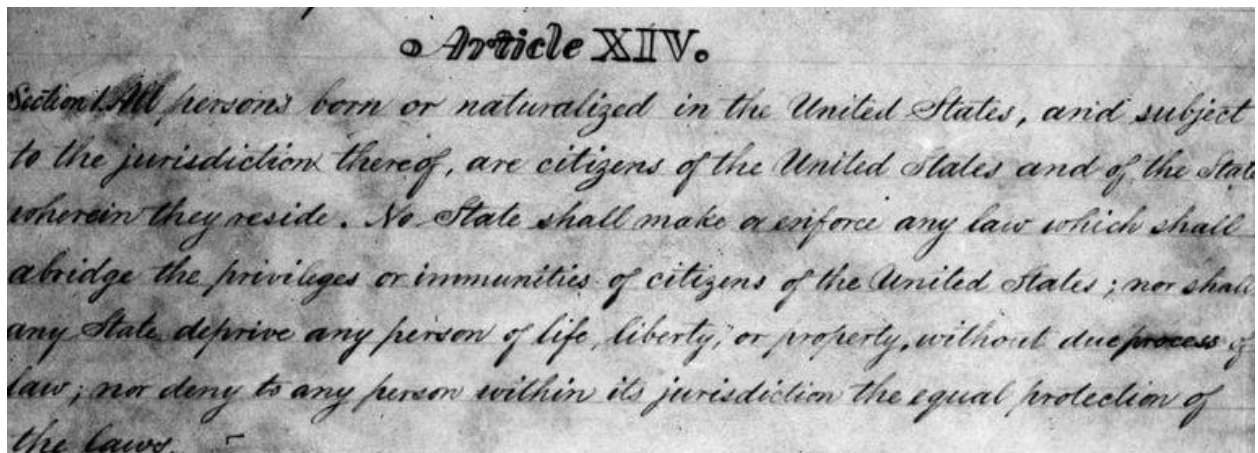 Article XIV.
Section 1. All persons born or naturalized in the United States, and subject
to the jurisdiction thereof, are citizens of the United States and of the State
wherein they reside. No State shall make or enforce any law which shall
abridge the privileges or immunities of citizens of the United States; nor shall
any State deprive any person of life, liberty, or property, without due process of
law; nor deny to any person within its jurisdiction the equal protection of
the laws.